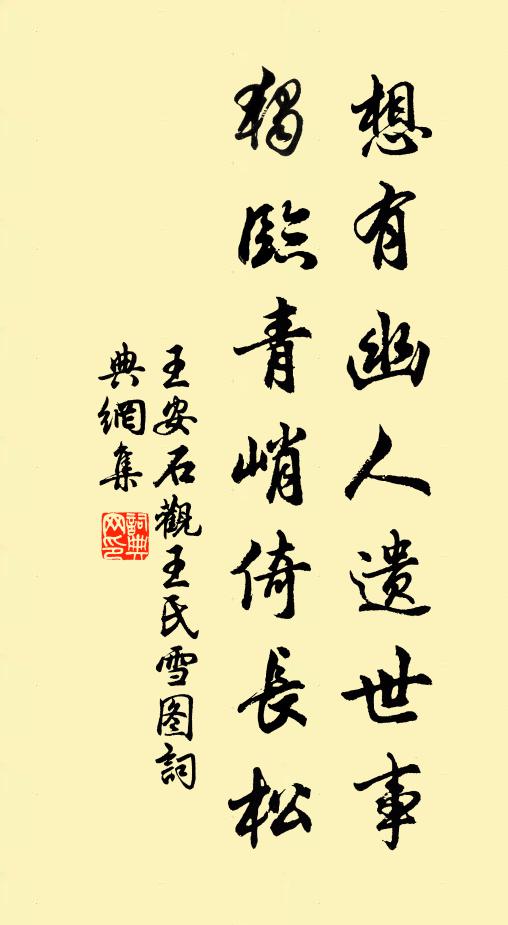 想有幽人遺世事
獨臨青峭倚長松
王安石觀王氏雪图詞
典網集
詞典
网印